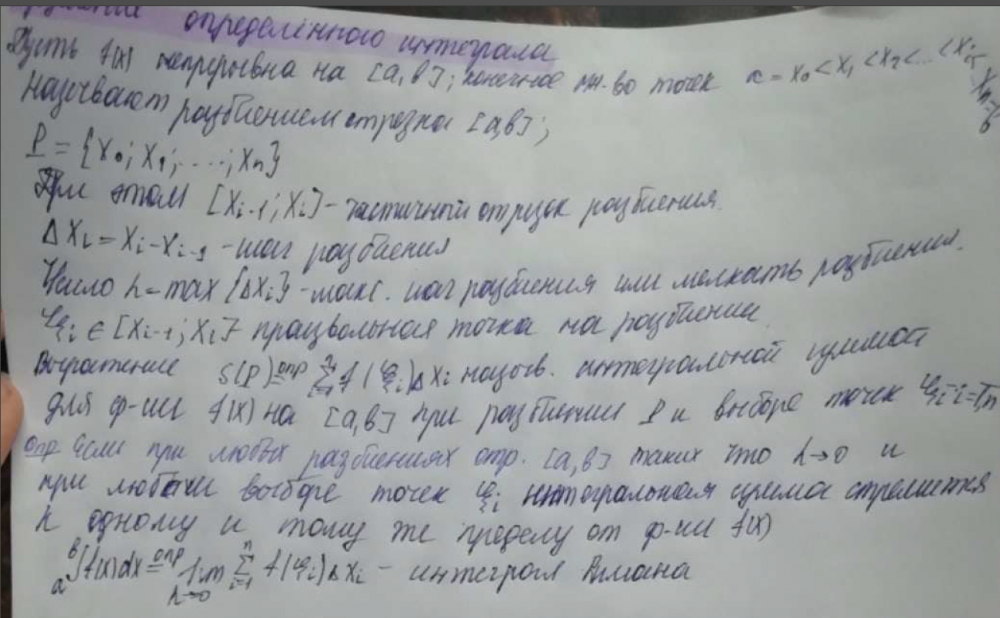 определённого интеграла
Пусть f(x) непрерывна на [a,b]; конечное мн-во точек a = x₀ < x₁ < x₂ < ... < xᵢ < xₙ = b
называют разбиением отрезка [a,b];
P = {x₀; x₁; ....; xₙ}
При этом [xᵢ₋₁; xᵢ] - частичный отрезок разбиения.
Δxᵢ = xᵢ - xᵢ₋₁ - шаг разбиения
Число λ = max {Δxᵢ} - макс. шаг разбиения или мелкость разбиения.
ξᵢ ∈ [xᵢ₋₁; xᵢ] - працвольная точка на разбиении
Выражение S(P) опр= Σⁿᵢ₌₁ f(ξᵢ)Δxᵢ назыв. интегральной суммой
для ф-ии f(x) на [a,b] при разбиении P и выборе точек ξᵢ i=1,n
Опр Если при любых разбиениях отр. [a,b] таких что λ→0 и
при любом выборе точек ξᵢ интегральная сумма стремится
к одному и тому же пределу от ф-ии f(x)
ₐ∫ᵇ f(x)dx опр= lim λ→0 Σⁿᵢ₌₁ f(ξᵢ)Δxᵢ - интеграл Римана